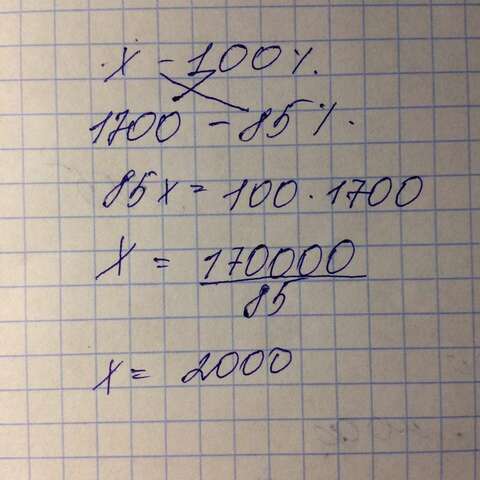 x - 100%.
1700 - 85%.
85x = 100 · 1700
x = 170000
85
x = 2000